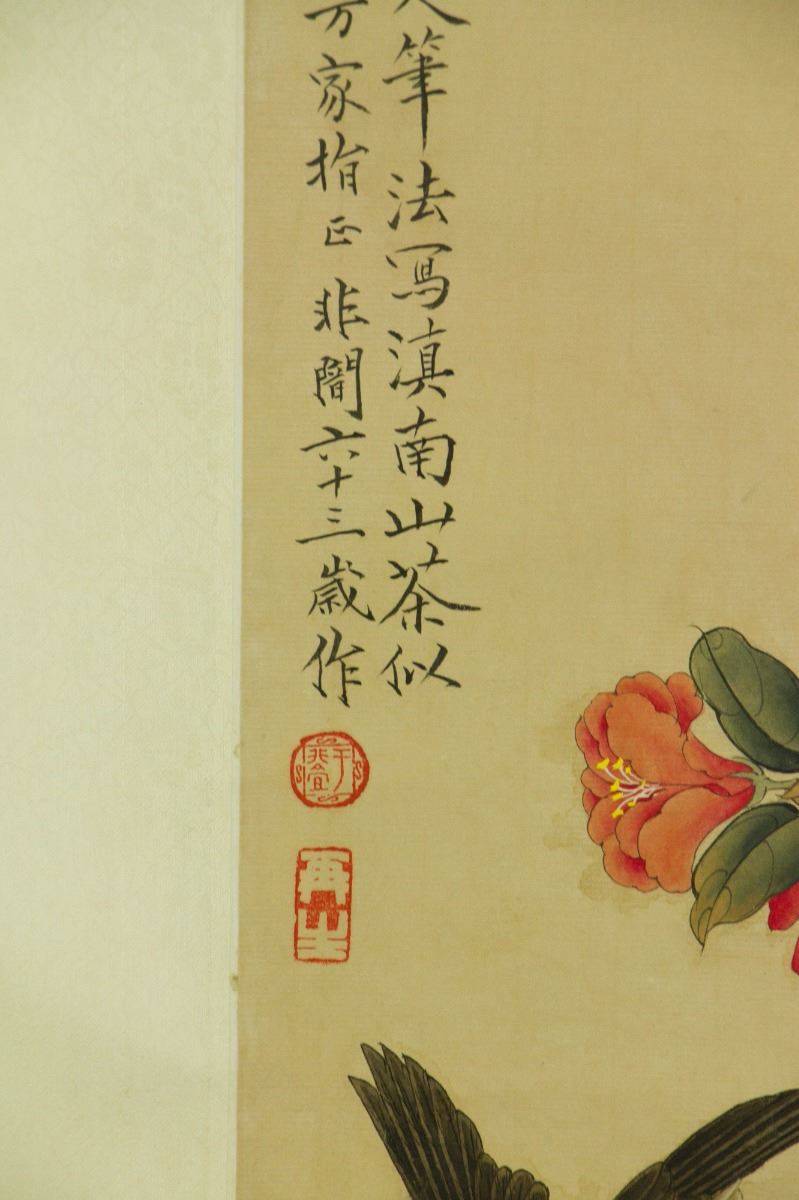 人筆法寫滇南山茶似
方家指正非闇六十三歲作